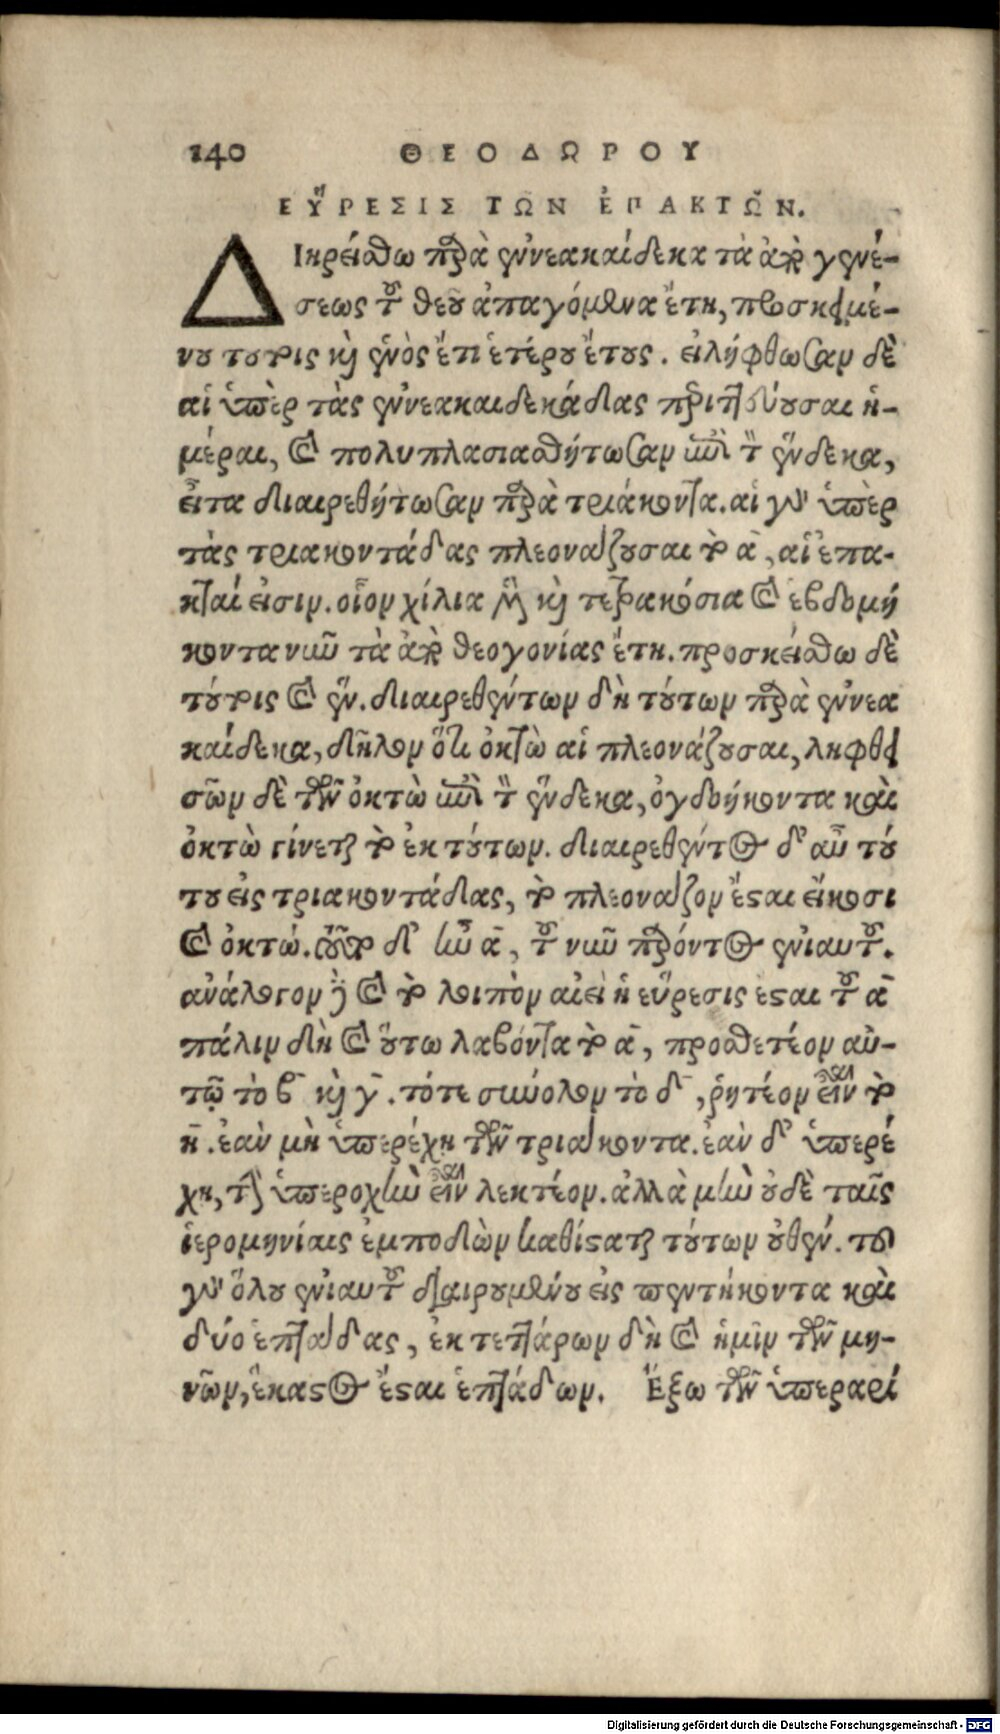 140 ΘΕΟΔΩΡΟΥ
ΕὝΡΕΣΙΣ ΤΩ͂Ν ἘΠΑΚΤΩ͂Ν.
ΔΙῃρείσθω παρὰ ἐννεακαίδεκα τὰ ἀπὸ γενέ-
σεως τοῦ θεοῦ ἀπαγόμενα ἔτη, προσκειμέ-
νου τούτοις καὶ ἑνὸς ἔτι ἑτέρου ἔτους. εἰλήφθωσαν δὲ
αἱ ὑπὲρ τὰς ἐννεακαιδεκάδας περιττεύουσαι ἡ-
μέραι, καὶ πολυπλασιασθήτωσαν ἐπὶ τὸν ἕνδεκα,
εἶτα διαιρεθήτωσαν παρὰ τριάκοντα. αἱ γοῦν ὑπὲρ
τὰς τριακοντάδας πλεονάζουσαι τὸ α, αἱ ἐπα-
κταί εἰσιν. οἷον χίλια μὲν καὶ τετρακόσια καὶ ἑβδομή
κοντα νῦν τὰ ἀπὸ θεογονίας ἔτη. προσκείσθω δὲ
τούτοις καὶ ἕν. διαιρεθέντων δὴ τούτων παρὰ ἐννεα
καίδεκα, δῆλον ὅτι ὀκτὼ αἱ πλεονάζουσαι, ληφθει
σῶν δὲ τῶν ὀκτὼ ἐπὶ τὸν ἕνδεκα, ὀγδοήκοντα καὶ
ὀκτὼ γίνεται τὸ ἐκ τούτων. διαιρεθέντος δ' αὖ τού
του εἰς τριακοντάδας, τὸ πλεονάζον ἔσται εἴκοσι
καὶ ὀκτώ. τοῦτο δ' ἦν α, τοῦ νῦν παρόντος ἐνιαυτοῦ.
ἀνάλογον γὰρ καὶ τὸ λοιπὸν αἰεὶ ἡ εὕρεσις ἔσται τοῦ α
πάλιν δὴ καὶ οὕτω λαβόντα τὸ α, προσθετέον αὐ-
τῷ τὸ β καὶ γ. τότε σύνολον τὸ δ, ῥητέον εἶναι τὸ
η. ἐὰν μὴ ὑπερέχῃ τῶν τριάκοντα. ἐὰν δ' ὑπερέ
χῃ, τὴν ὑπεροχὴν εἶναι λεκτέον. ἀλλὰ μὴν οὐδὲ ταῖς
ἱερομηνίαις ἐμποδὼν καθίσταται τούτων οὐθέν. τοῦ
γοῦν ὅλου ἐνιαυτοῦ διαιρουμένου εἰς πεντήκοντα καὶ
δύο ἑπτάδας, ἐκ τεττάρων δὴ καὶ ἡμῖν τῶν μη-
νῶν, ἕκαστος ἔσται ἑπτάδων. Ἔξω τῶν ὑπεραρί
Digitalisierung gefördert durch die Deutsche Forschungsgemeinschaft - DFG